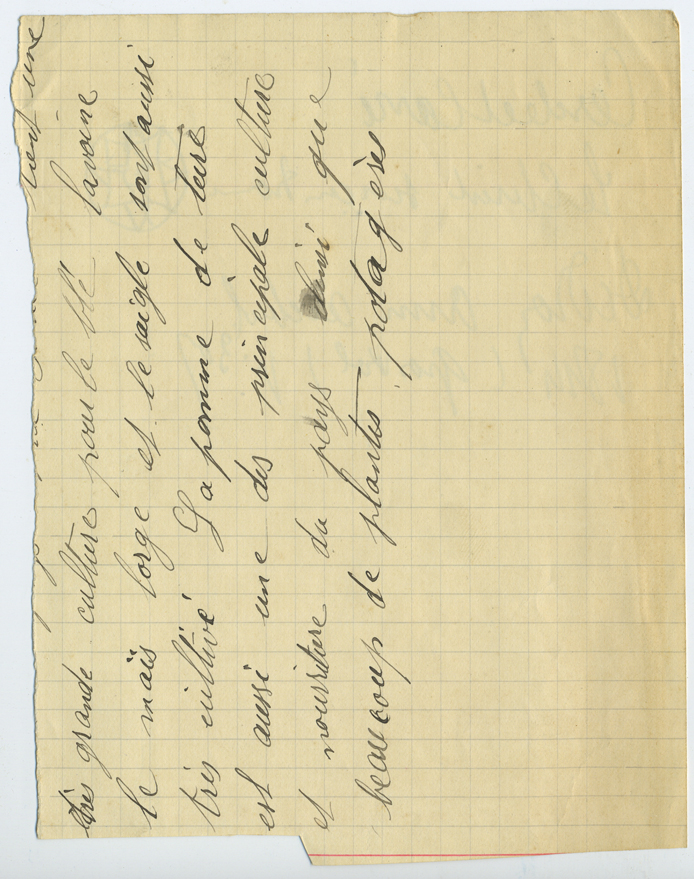 tient une
très grande culture pour le blé lavoine
le maïs lorge et le seigle sont aussi
très cultivé La pomme de tere
est aussi une des principale culture
et nourriture du pays ainsi que
beaucoup de plantes potagères